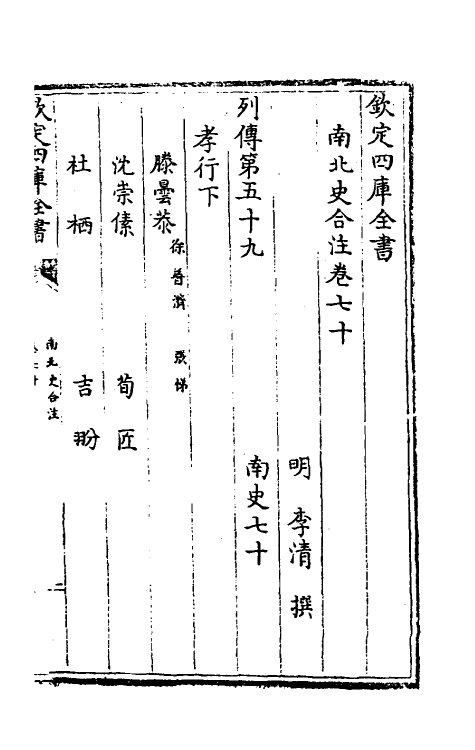 欽定四庫全書
南北史合注卷七十
明 李清 撰
列傳第五十九 南史七十
孝行下
滕曇恭 徐普濟 張悌
沈崇傃 荀匠
杜栖 吉翂
欽定四庫全書 南北史合注